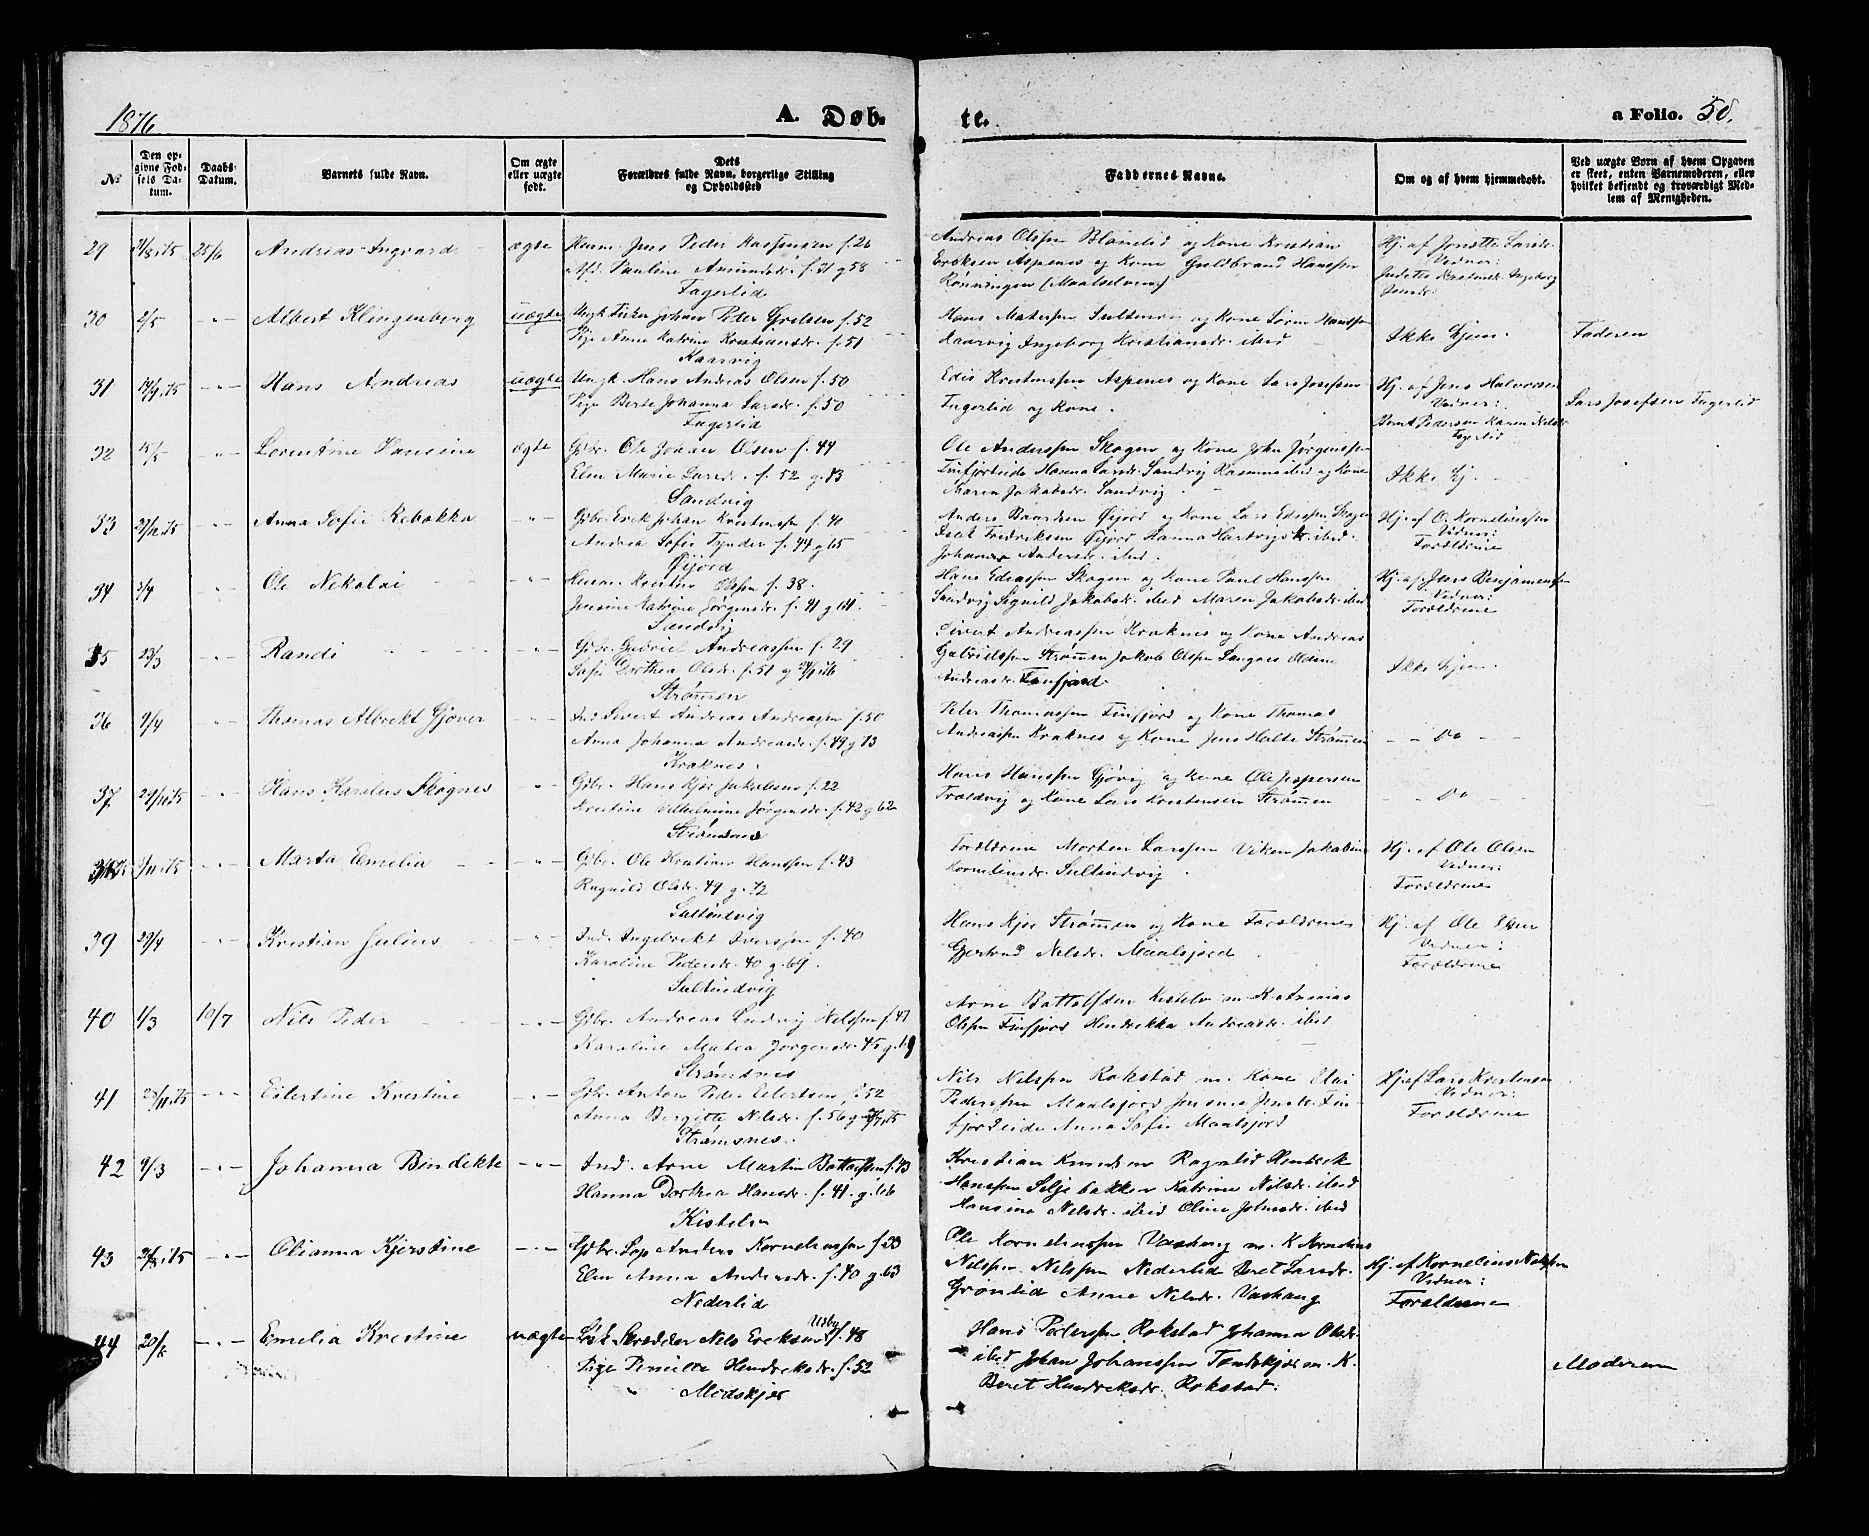 1876.
A. Døb-
te.
a Folio. 58.
№
Den op-
givne Fød-
sels Da-
tum.
Daabs-
Datum.
Barnets fulde Navn.
Om ægte
eller uægte
født.
Dets
Forældres fulde Navn, borgerlige Stilling
og Opholdssted
Faddernes Navne.
Om og af hvem hjemmedøbt.
Ved uægte Børn af hvem Opgaven
er skeet, enten Barnemoderen, eller
hvilket bekjendt og troværdigt Med-
lem af Menigheden.
29 25/6 Andreas Ingvard ægte Jens Peder f. 26
Pauline Amundsdr. f. 31 g 58
Fagerlid
Andreas Olssen og Kone Kristian
Ericksen Aspenes og Kone Guldbrand Hanssen
Rønningen (Maalselven)
Hj. af Jonette Larsdr.
Vidner:
30 2/5 -"- Albert Klingenberg uægte Ungk. Fisker Johan Peder f. 52
Pige Anne Katrine Kristiansdr. f. 51
Kaarvig
Hans og Kone Søren Hanssen
Kaarvig Ingeborg Kristiansdr. ibid
Ikke hjem.
Faderen
31 14/9.75 -"- Hans Andreas uægte Ungk. Hans Andreas Olsen f. 50
Pige Berte Johanna Larsdr. f. 50
Fagerlid
Edis Kristenssen Aspenes og Kone Lars Josefsen
Fagerlid og Kone.
Hj. af Jens Halvorsen
Vidner:
Bernt Pedersen Karen Nilsdr
Fagerlid
Lars Josefsen Fagerlid
32 15/5 " Lorentine Hansine ægte Gdbr. Ole Johan Olsen f. 44
Elen Marie Larsdr. f. 52 g. 73
Sandvig
Ole Anderssen Skogen og Kone John Jørgenssen
Finfjordeide Hansina Larsdr. Sandvig Rasmus ibid og Kone
Maren Jakobsdr. Sandvig.
Ikke Hj.
33 27/12.75 -"- Anna Sofie Rebekka -"- Gdbr. Erek Johan Kristenssen f. 40
Andrea Sofie Tynder f. 44 g 65
Øijord
Anders Baardsen Øijord og Kone Lars Edissen Skogen
Isak Fredriksen Øijord Hanna Hartvigsdr. ibid.
Johanna Andersdr. ibid.
Hj. af O. Kornelinssen
Vidner:
Forældrene
34 3/4 -"- Ole Nekolai -"- Husm. Kristen Olssen f. 38.
Jensine Katrine Jørgensdr. f. 41 g 64.
Sandvig
Hans Edissen Skogen og Kone Paul Hanssen
Sandvig Segnild Jakobsdr. ibid Maren Jakobsdr. ibid
Hj. af Jens Benjaminsen
Vidner:
Forældrene
35 23/3 -"- Randi -"- Gdbr. Gabriel Andreassen f. 29
Sofie Dorthea Olsdr. f. 51 g
Strømen
Sivert Andreassen Kraknes og Kone Andreas
Gabrielssen Strømen Jakob Olssen Langnes
Andreasdr. Finfjord.
Ikke hjem.
36 9/4 -"- Thomas Albrekt Gjøver -"- Ind. Sivert Andreas Andreassen f. 50
Anna Johanna Andreasdr. f. 49 g 73
Kraknes.
Peter Thomassen Finfjord og Kone Thomas
Andreassen Kraknes og Kone Jens Holte Strømen
- - Do - -
37 29/12.75 -"- Hans Karolus Skognes " Gdbr. Hans Kjær Jakobsen f. 22
Kristine Vilhelmine Jørgensdr. f. 42 g 62
Strømsnes
Hans Hanssen Gjøvig og Kone Ole Jespersen
Trældvig og Kone Lars Kristensen Strømen
- Do -
-"- Marta Emelia -"- Gdbr. Ole Kristian Hanssen f. 43
Ragnild Olsdr. 49 g. 72
Sultindvig
Forældrene Morten Larssen Viken Jakobine
Kornelinsdr. Sultindvig.
Hj. af Ole Olsen
Vidner:
Forældrene
39 29/4 -"- Kristian Julius -"- Ind. Ingebrekt Iverssen f. 40
Karoline Pedersdr. 40 g. 69.
Sultindvig
Hans Kjær Strømen og Kone Forældrene
Gjertrud Nilsdr. Maalsjord
Hj. af Ole Olsen
Vidner:
Forældrene
40 1/3 10/7 Nils Peder -"- Gdbr. Andreas Ludvig Nilssen f. 47
Karoline Matea Jørgensdr. 45 g. 69
Strømsnes
Arne Bottolfsen Kistelv m. K. Arenias
Olssen Finfjord Hendrikka Andreasdr. ibid
41 -"- Eilertine Kristine -"- Gdbr. Anton Peder Eilertsen f. 52
Anna Bergitte Nilsdr. f. 56 g
Strømsnes.
Nils Nilssen Rokstad m. Kone
Pederssen Maalsjord Jensine Jensdr. Fin-
fjordeide Anna Sofie Maalsjord
Hj. af Lars Kristensen
Vidner:
Forældrene
42 9/3 -"- Johanna Bendekte -"- Ind. Arne Martin Bottolfsen f. 43
Hanna Dorthea Hansdr. f. 41. g. 66
Kistelv
Kristian Knudsen Rognlid Hendrik
Hanssen Seljebakken Katrine Nilsdr. ibid
Hansine Nilsdr. ibid Oline Johnsdr. ibid
43 -"- Olianna Kjerstine -"- Gdbr. Lap Anders Kornelinssen f. 33
Elen Anna Andersdr. f. 40 g. 63
Nederlid
Ole Kornelinssen Vashaug m. K Kornelius
Nilssen Nilssen Nederlid Beret Larsdr.
Grønlid Anne Nilsdr. Vashaug
Hj. af Kornelius Nilssen
Vidner:
Forældrene
44 20/5 -"- Emelia Kristine uægte Skrædder Nils Ericksen Usby f. 48
Pige Pernille Hendriksdr. f. 52
Modskjær
Hans Pederssen Rokstad Johanna Olsdr.
ibid Johan Johanssen Tendskjær m. K.
Beret Hendriksdr. Rokstad.
Moderen